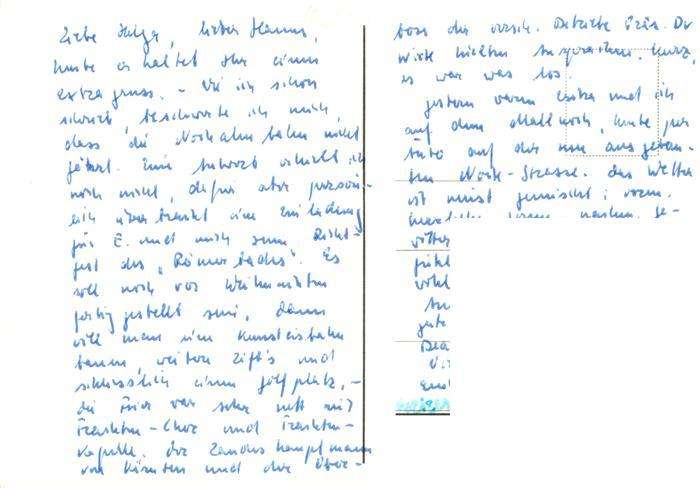 Liebe Helga, lieber Hanns,
heute erhaltet Ihr einen
extra gruss. – Wie ich schon
schrieb, beschwerte ich mich,
dass die Nockalmbahn nicht
fährt. Eine Antwort erhielt ich
noch nicht, dafür aber persön-
lich überbracht eine Einladung
für E. und mich zum Richt-
fest des „Römerbades". Es
soll noch vor Weihnachten
fertig gestellt sein, dann
will man eine Kunsteisbahn
bauen, weitere Lift's und
schliesslich einen golfplatz. –
die Feier war sehr nett mit
Trachten-Chor und Trachten-
Kapelle. Der Landeshauptmann
von Kärnten und der Ober-
boss der versch. Betriebe Frön. Dr
hielten Ansprachen. Kurz,
es war was los.
gestern waren und ich
auf dem Mallnock, heute per
Auto auf der neu ausgebau-
ten Nock-Strasse. Das Wetter
ist meist gemischt: vorm.
herrlich, nachm. Ge-
witter